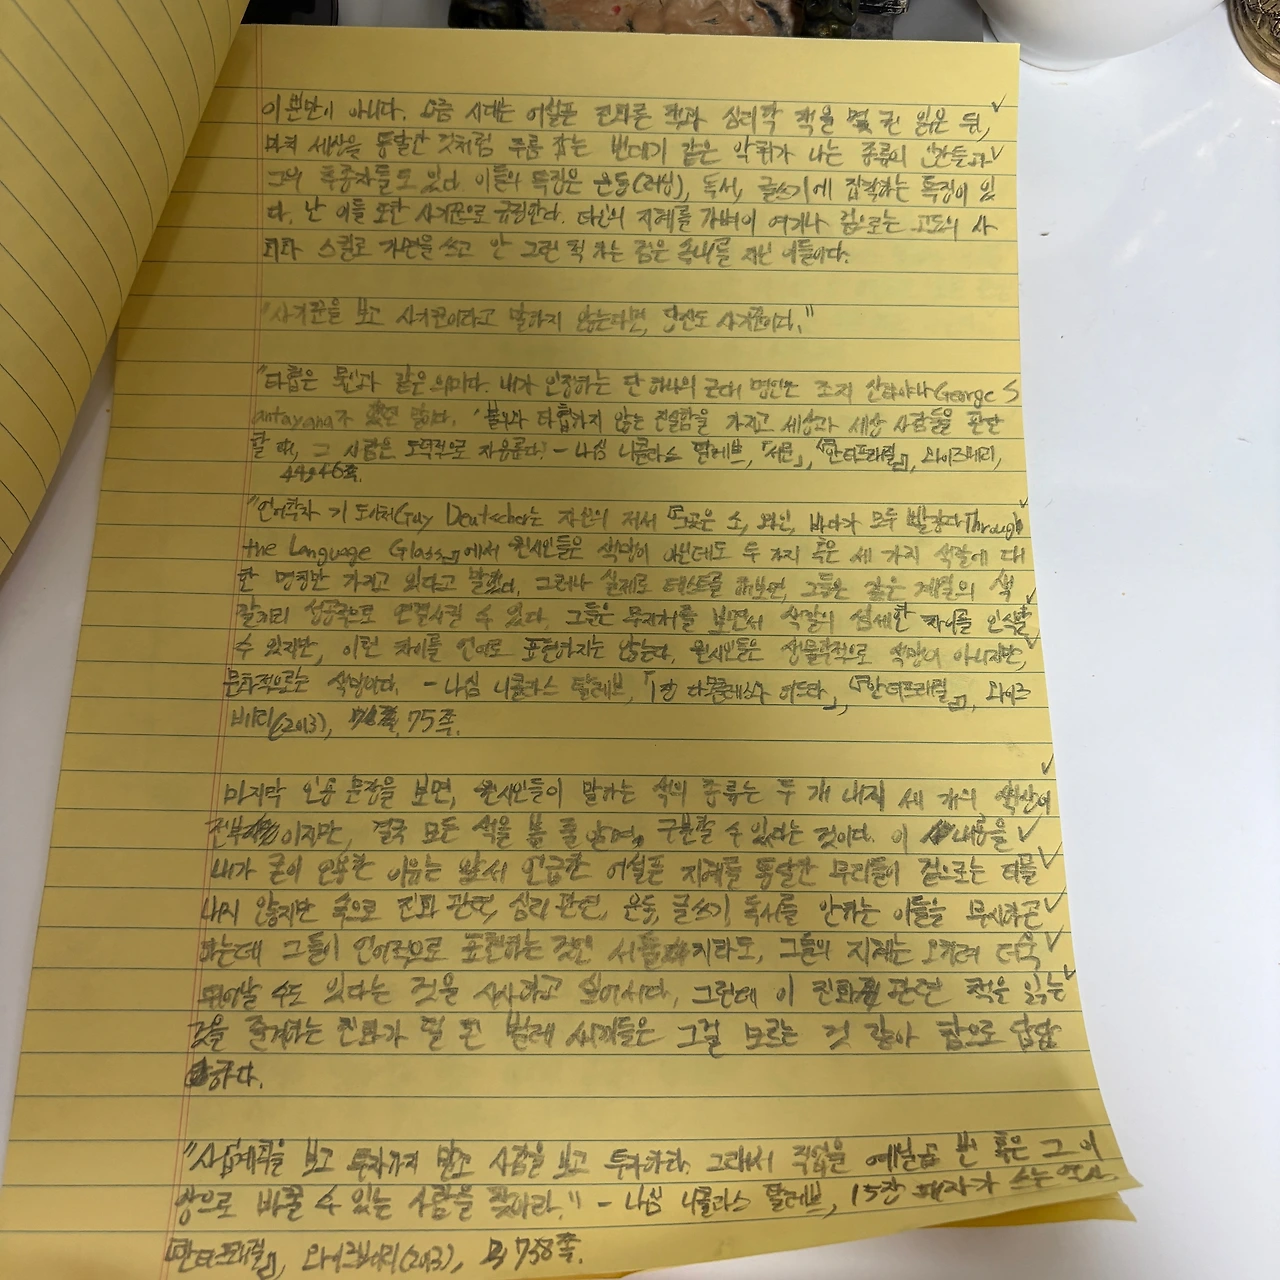 이 뿐만이 아니다. 요즘 시대는 어설픈 진화론 책과 심리학 책을 몇 권 읽은 뒤,
마치 세상을 통달한 것처럼 주름 잡는 번데기 같은 악취가 나는 종류의 인간들과
그의 추종자들도 있다. 이들의 특징은 운동(러닝), 독서, 글쓰기에 집착하는 특징이 있
다. 난 이들 또한 사기꾼으로 규정한다. 타인의 지혜를 가벼이 여기나 겉으로는 고도의 사
회화 스킬로 가면을 쓰고 안 그런 척 하는 검은 속내를 지닌 이들이다.
"사기꾼을 보고 사기꾼이라고 말하지 않는다면, 당신도 사기꾼이다."
"타협은 묵인과 같은 의미다. 내가 인정하는 단 하나의 근대 명언은 조지 산타야나George S
antayana가 했던 말이다. '불의와 타협하지 않는 진실함을 가지고 세상과 세상 사람들을 판단
할 때, 그 사람은 도덕적으로 자유롭다.' - 나심 니콜라스 탈레브, 「서문」, 『안티프래질』, 와이즈베리,
44, 46쪽.
"언어학자 기 도이처Guy Deutscher는 자신의 저서 『그곳은 소, 와인, 바다가 모두 빨갛다Through
the Language Glass』에서 원시인들은 색맹이 아닌데도 두 가지 혹은 세 가지 색깔에 대
한 명칭만 가지고 있다고 말했다. 그러나 실제로 테스트를 해보면, 그들은 같은 계열의 색
깔끼리 성공적으로 연결시킬 수 있다. 그들은 무지개를 보면서 색깔의 섬세한 차이를 인식할
수 있지만, 이런 차이를 언어로 표현하지는 않는다. 원시인들은 생물학적으로 색맹이 아니지만,
문화적으로는 색맹이다. - 나심 니콜라스 탈레브, 「1장 다모클레스와 히드라」, 『안티프래질』, 와이즈
베리(2013), 75쪽.
마지막 인용 문장을 보면, 원시인들이 말하는 색의 종류는 두 개 내지 세 개의 색상이
전부이지만, 결국 모든 색을 볼 줄 알며, 구분할 수 있다는 것이다. 이 내용을
내가 굳이 인용한 이유는 앞서 언급한 어설픈 지혜를 통달한 무리들이 겉으로는 티를
내지 않지만 속으로 진화 관련, 심리 관련, 운동, 글쓰기, 독서를 안하는 이들을 무시하곤
하는데 그들이 언어적으로 표현하는 것은 서툴지라도, 그들의 지혜는 오히려 더욱
뛰어날 수도 있다는 것을 시사하고 싶어서다. 그런데 이 진화 관련 책을 읽는
것을 즐겨하는 진화가 덜 된 벌레 새끼들은 그걸 모르는 것 같아 참으로 답답
하다.
"사업계획을 보고 투자하지 말고 사람을 보고 투자하라. 그래서 직업을 예닐곱 번 혹은 그 이
상으로 바꿀 수 있는 사람을 찾아라." - 나심 니콜라스 탈레브, 15장 패자가 쓰는 역사,
『안티프래질』, 와이즈베리(2013), 738쪽.